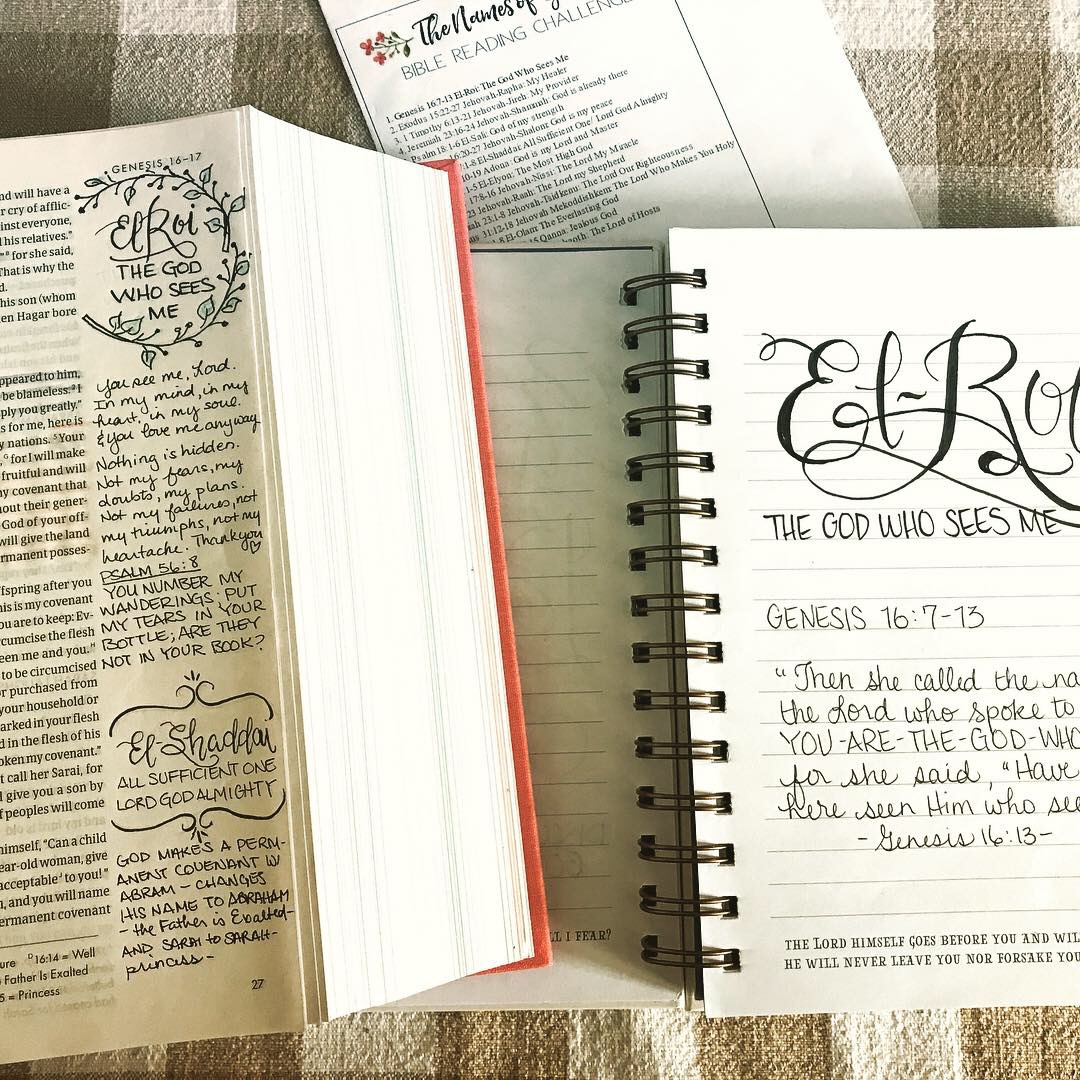 The Names of
BIBLE READING CHALLENGE
1. Genesis 16:7-13 El-Roi: The God Who Sees Me
2. Exodus 15:22-27 Jehovah-Rapha: My Healer
3. 1 Timothy 6:13-21 Jehovah-Jireh: My Provider
4. Jeremiah 23:16-24 Jehovah-Shammah: God is already there
Psalm 18:1-6 El-Sali: God of my strength
6:20-27 Jehovah-Shalom: God is my peace
1-8 El-Shaddai: All Sufficient One/ Lord God Almighty
10-19 Adonai: God is my Lord and Master
1-5 El-Elyon: The Most High God
17:8-16 Jehovah-Nissi: The Lord My Miracle
23 Jehovah-Raah: The Lord my Shepherd
23:1-8 Jehovah-Tsidkenu: The Lord Our Righteousness
31:12-18 Jehovah Mekoddishkem: The Lord Who Makes You Holy
1-8 El-Olam: The Everlasting God
15 Qanna: Jealous God
The Lord of Hosts
GENESIS 16–17
nd will have a
r cry of afflic-
inst everyone,
his relatives."
for she said,
That is why the
d.
his son (whom
en Hagar bore
ppeared to him,
be blameless: I
ply you greatly."
s for me, here is
y nations. 5 Your
for I will make
fruitful and will
y covenant that
out their gener-
God of your off-
will give the land
rmanent posses-
ffspring after you
his is my covenant
ou are to keep: Ev-
cumcise the flesh
een me and you."
to be circumcised
r purchased from
your household or
arked in your flesh
d in the flesh of his
oken my covenant."
t call her Sarai, for
l give you a son by
f peoples will come
himself, "Can a child
ear-old woman, give
acceptable to you!"
n, and you will name
ermanent covenant
ure D 16:14 = Well
Father Is Exalted
5 = Princess
El Roi
THE GOD
WHO SEES
ME
You see me, Lord.
In my mind, in my
heart, in my soul.
& you love me anyway
Nothing is hidden.
Not my fears, my
doubts, my plans.
Not my failures, not
my triumphs, not my
heartache. Thank you
PSALM 56:8
YOU NUMBER MY
WANDERINGS. PUT
MY TEARS IN YOUR
BOTTLE; ARE THEY
NOT IN YOUR BOOK?
El-Shaddai
ALL SUFFICIENT ONE
LORD GOD ALMIGHTY
GOD MAKES A PERM-
ANENT COVENANT W/
ABRAM - CHANGES
HIS NAME TO ABRAHAM
- the Father is Exalted-
AND SARAI to SARAH-
princess-
27
LL I FEAR?
El-Roi
THE GOD WHO SEES ME
GENESIS 16:7-13
"Then she called the na
the Lord who spoke to
YOU-ARE-THE-GOD-WHO
for she said, "Have
here seen Him who see
- Genesis 16:13 -
THE LORD HIMSELF GOES BEFORE YOU AND WIL
HE WILL NEVER LEAVE YOU NOR FORSAKE YOU